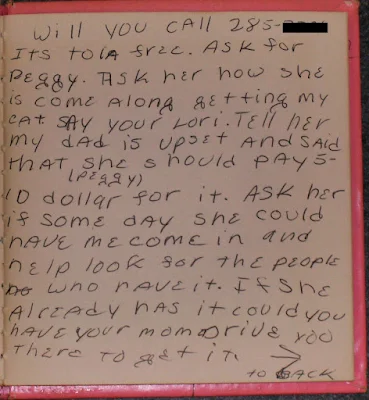 Will you call 285-
Its tola free. Ask for
Peggy. Ask her how she
is come along getting my
cat say your Lori. Tell her
my dad is upset and said
that she should pay 5-
(peggy)
10 dollar for it. Ask her
if some day she could
have me come in and
help look for the people
who have it. If she
already has it could you
have your mom drive you
there to get it.
to back